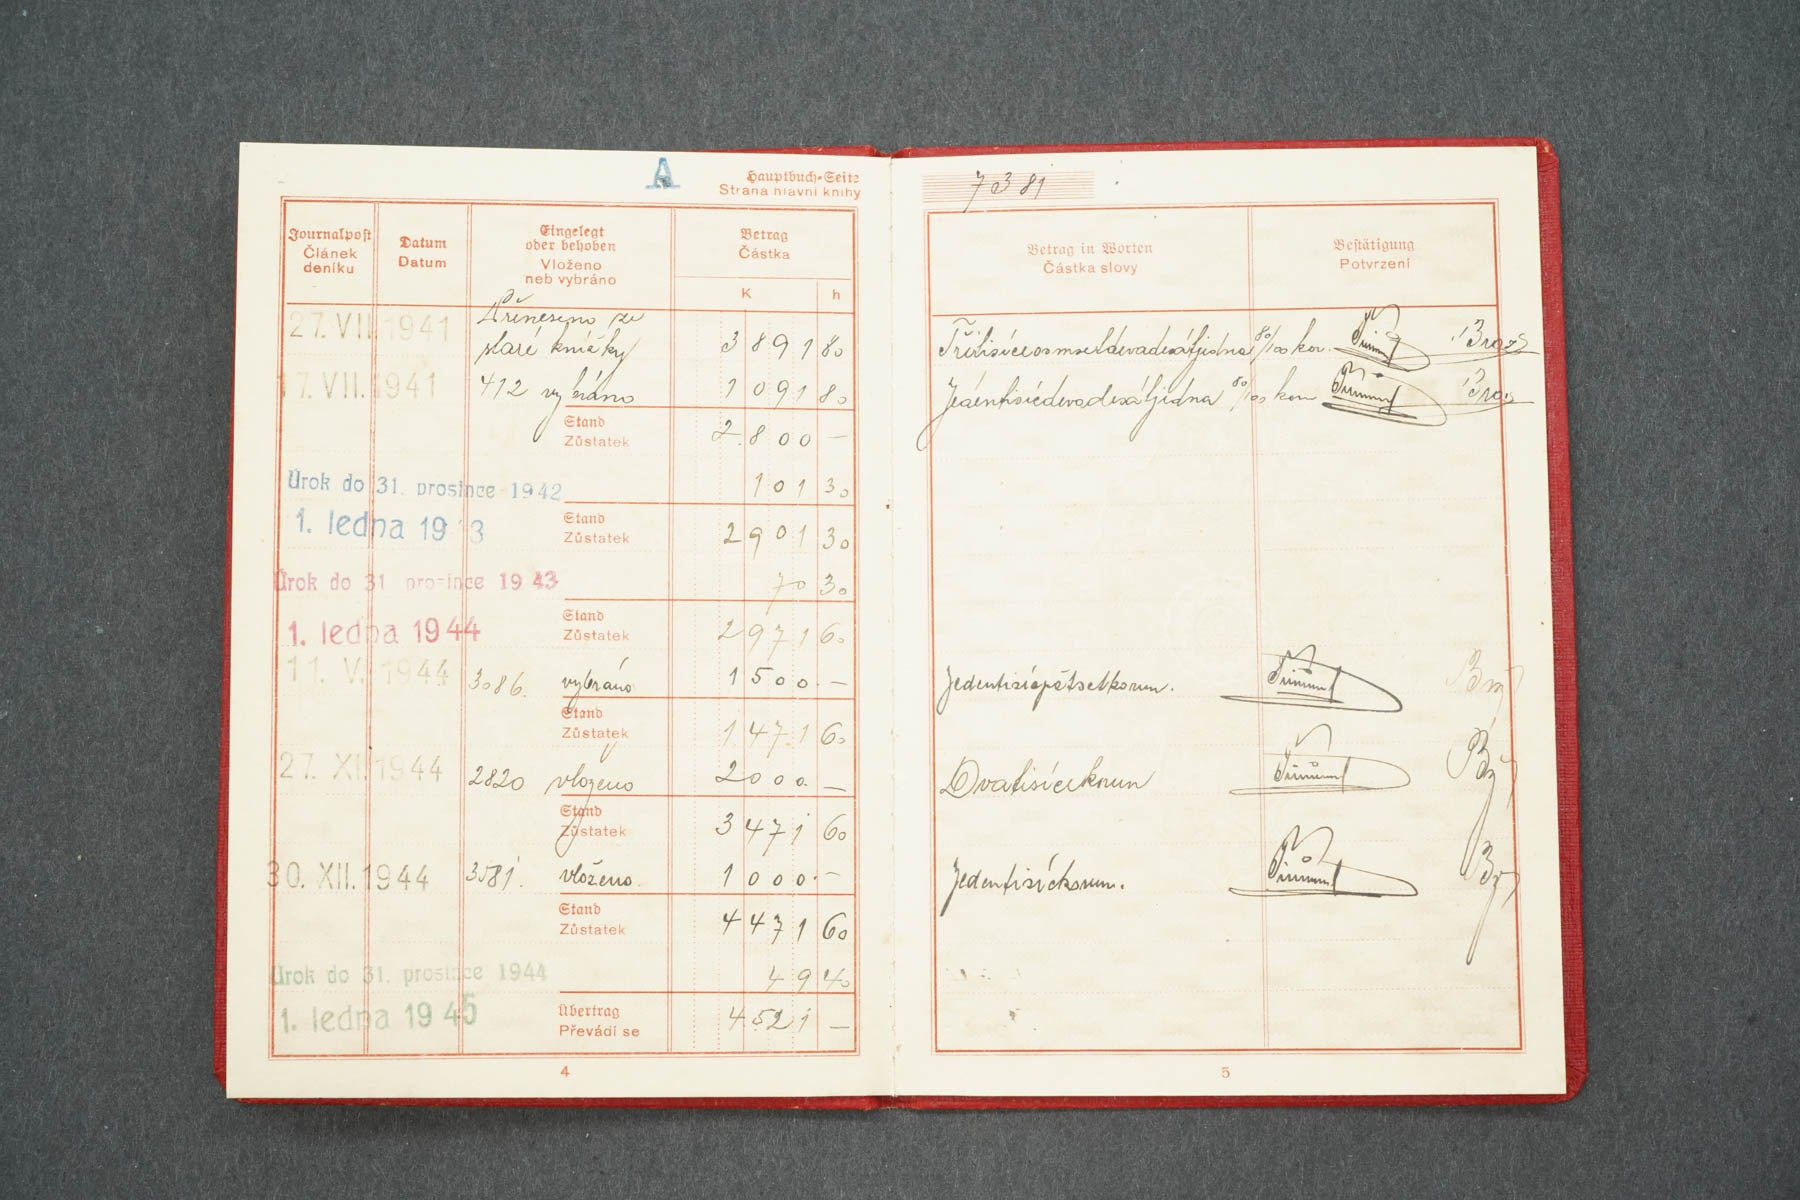 A
Hauptbuch-Seite
Strana hlavní knihy
Journalpost
Článek
deníku
Datum
Datum
Eingelegt
oder behoben
Vloženo
neb vybráno
Betrag
Částka
K h
27. VII. 1941 Přineseno ze
staré knížky 3891 80
17. VII. 1941 412 vybráno 1091 80
Stand
Zůstatek 2.800 —
Úrok do 31. prosince 1942 101 30
1. ledna 19 3 Stand
Zůstatek 2901 30
Úrok do 31. prosince 1943 70 30
1. ledna 1944 Stand
Zůstatek 2971 60
11. V. 1944 3086. vybráno 1500. —
Stand
Zůstatek 1471 60
27. XI. 1944 2820 vloženo 2000. —
Stand
Zůstatek 3471 60
30. XII. 1944 3581. vloženo 1000. —
Stand
Zůstatek 4471 60
Úrok do 31. prosince 1944 49 40
1. ledna 1945 Übertrag
Převádí se 4521 —
4
7381
Betrag in Worten
Částka slovy
Bestätigung
Potvrzení
Třitisíceosmsetdevadesátjedna 80/100 kor.
Jedentisícdevadesátjedna 80/100 korun
Jedentisícpětsetkorun.
Dvatisícekorun
Jedentisíckorun.
5